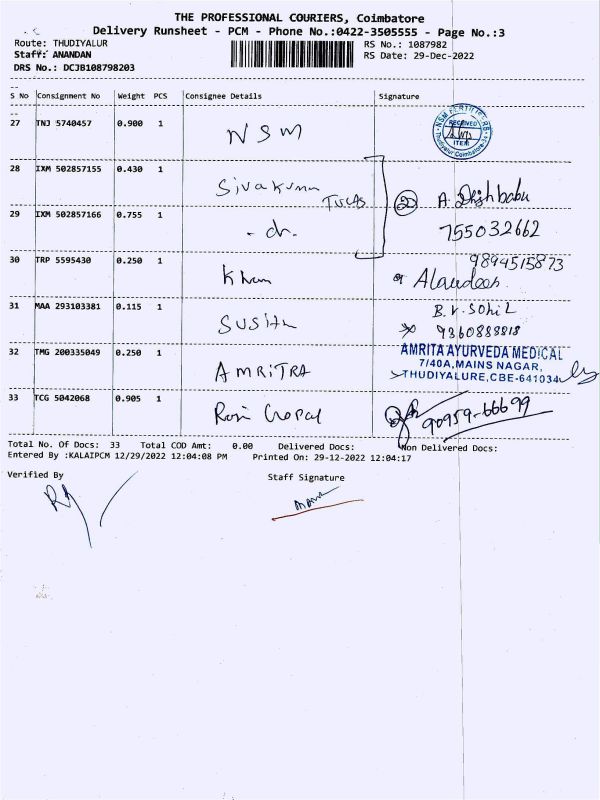 THE PROFESSIONAL COURIERS, Coimbatore
Delivery Runsheet - PCM - Phone No.:0422-3505555 - Page No.:3
Route: THUDIYALUR RS No.: 1087982
Staff: ANANDAN RS Date: 29-Dec-2022
DRS No.: DCJB108798203
S No Consignment No Weight PCS Consignee Details Signature
27 TNJ 5740457 0.900 1 NSM NSM FERTILISERS RECEIVED ITEM Thudiyalur Coimbatore-34
28 IXM 502857155 0.430 1 Sivakumar TUCAS 20 A. Dhishbabu
29 IXM 502857166 0.755 1 - do. 755032662
30 TRP 5595430 0.250 1 Khan 9894515873
31 MAA 293103381 0.115 1 SUSITH B.V. SOHIL
9360888818
32 TMG 200335049 0.250 1 AMRITRA AMRITA AYURVEDA MEDICAL
7/40A, MAINS NAGAR,
THUDIYALURE, CBE-641034
33 TCG 5042068 0.905 1 Raj Gopal 90959-66699
Total No. Of Docs: 33 Total COD Amt: 0.00 Delivered Docs: Non Delivered Docs:
Entered By :KALAIPCM 12/29/2022 12:04:08 PM Printed On: 29-12-2022 12:04:17
Verified By Staff Signature